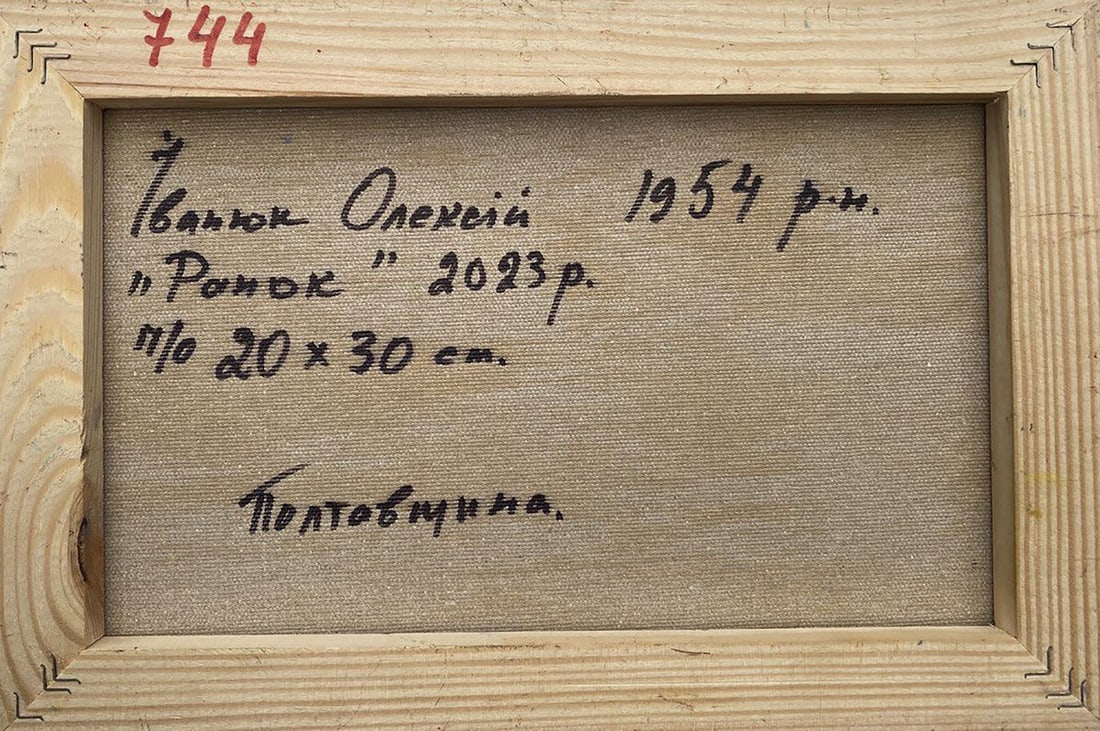 744
Іванюк Олексій 1954 р.н.
"Ранок" 2023р.
п/о 20 x 30 см.
Полтавщина.